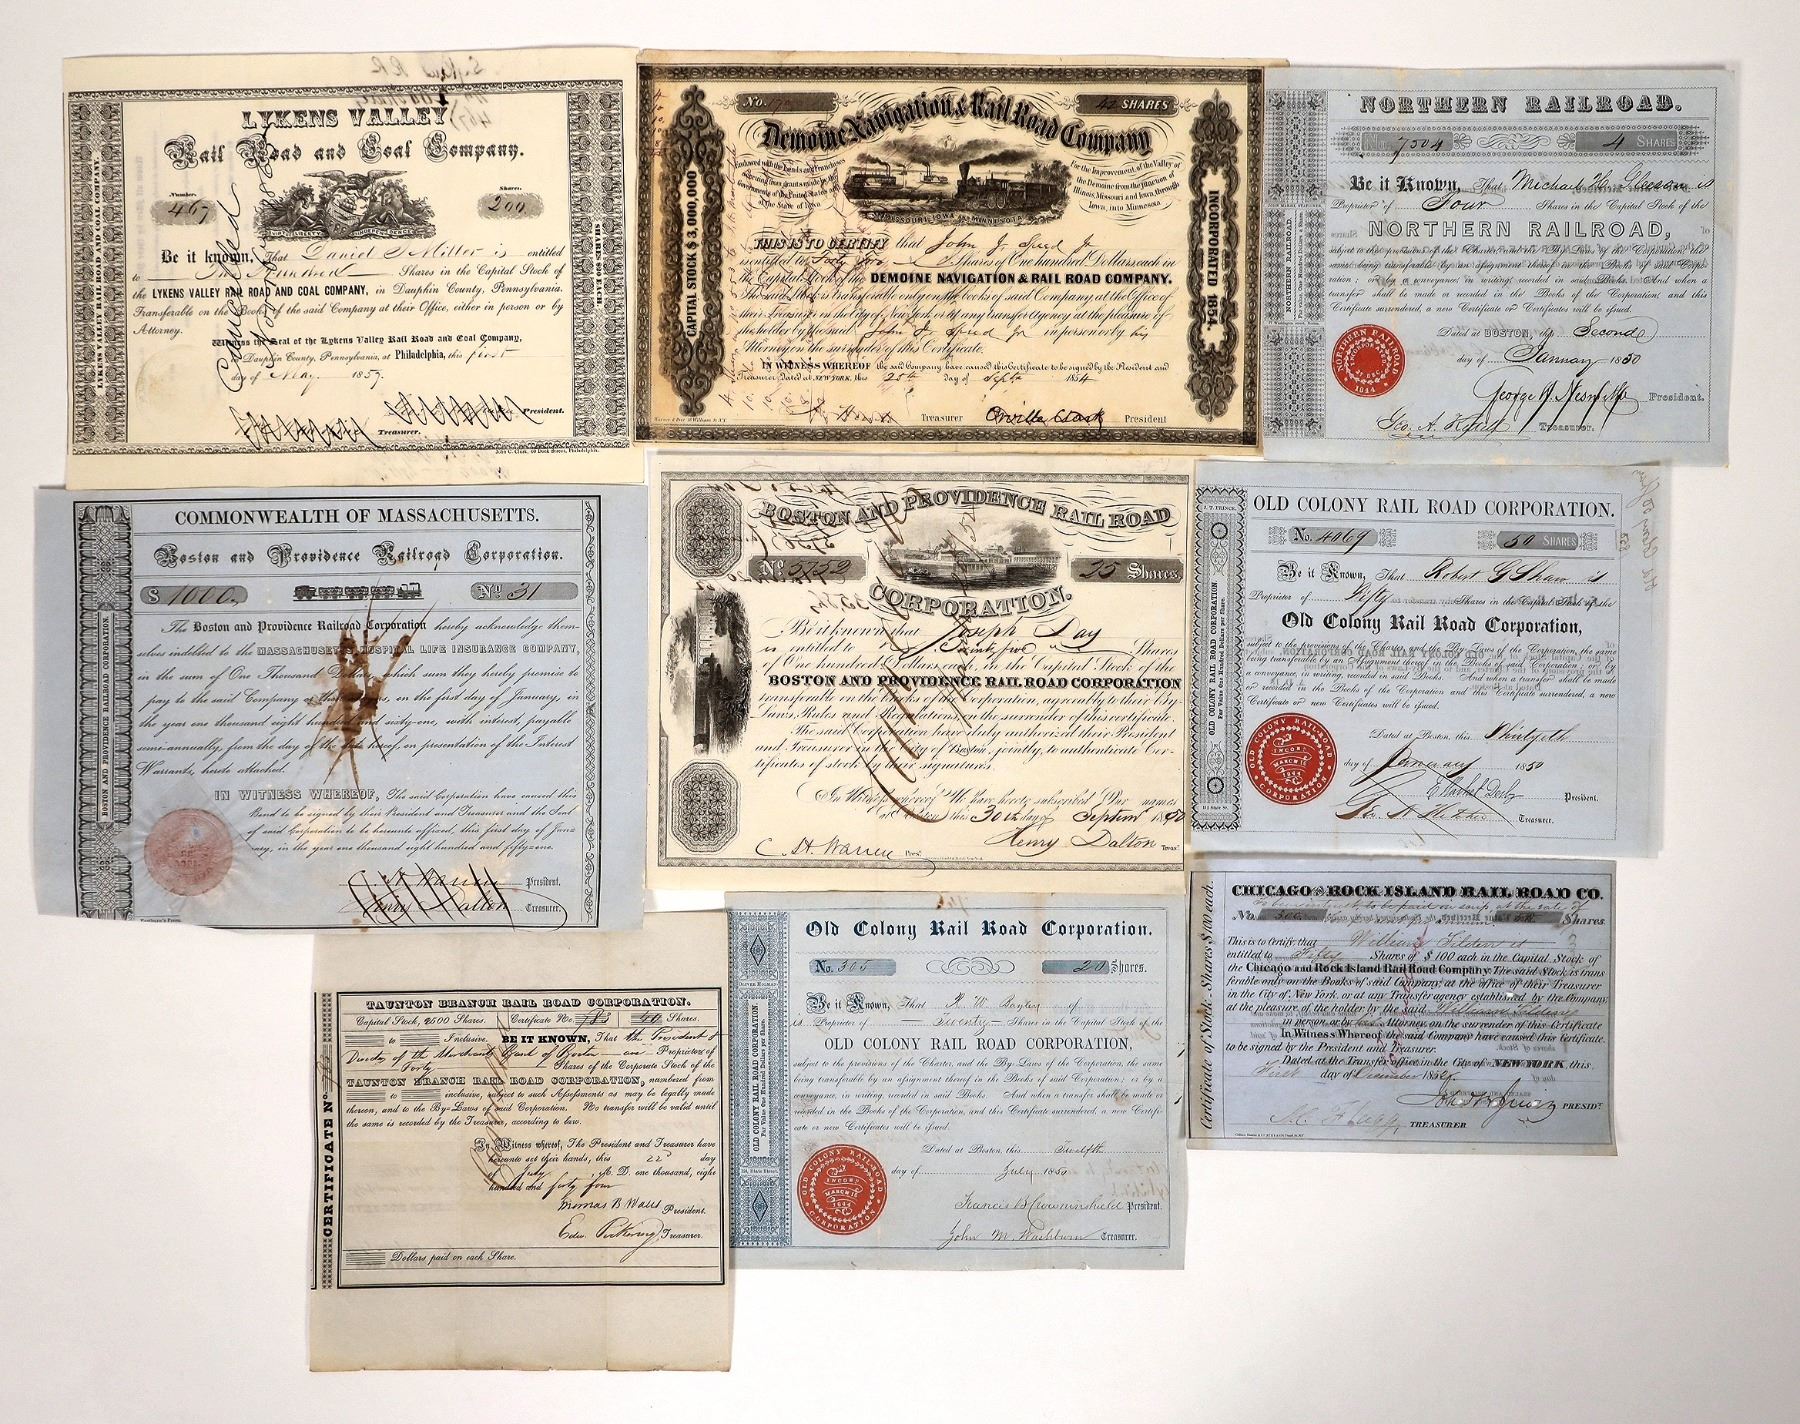 LYKENS VALLEY
Rail Road and Coal Company.
Number. Shares.
467 200
Be it known, That Daniel S Miller is entitled
to Two Hundred Shares in the Capital Stock of
the LYKENS VALLEY RAIL ROAD AND COAL COMPANY, in Dauphin County, Pennsylvania.
Transferable on the Books of the said Company at their Office, either in person or by
Attorney.
Witness the Seal of the Lykens Valley Rail Road and Coal Company,
Dauphin County, Pennsylvania, at Philadelphia, this first
day of May 1857.
President.
Treasurer.
John C. Clark, 60 Dock Street, Philadelphia.
LYKENS VALLEY RAIL ROAD AND COAL COMPANY.
EACH SHARE $20
Cancelled
No. 42 SHARES
Demoine Navigation & Rail Road Company
Endowed with the Lands and Franchises
For the Improvement of the Valley of
the Demoine from the junction of
Illinois, Missouri and Iowa, through
Iowa, into Minnesota
MISSOURI, IOWA & MINNESOTA
CAPITAL STOCK $3,000,000
INCORPORATED 1854.
THIS IS TO CERTIFY that John J. Speed Jr
is entitled to Forty two Shares of One hundred Dollars each in
the Capital Stock of the DEMOINE NAVIGATION & RAIL ROAD COMPANY.
The said Stock is transferable only on the books of said Company at the Office of
their Treasurer in the City of New York or at any transfer agency at the pleasure of
the holder by the said John J. Speed Jr in person or by his
Attorney on the surrender of this Certificate.
IN WITNESS WHEREOF the said Company have caused this Certificate to be signed by the President and
Treasurer. Dated at NEW-YORK this 25th day of Septr 1854
Treasurer Orville Clark President
NORTHERN RAILROAD.
No. 7504 4 SHARES
Be it Known, That Michael W. Gleason is
Proprietor of Four Shares in the Capital Stock of the
NORTHERN RAILROAD,
subject to the provisions of the Charter and the By-Laws of the Corporation, the
same being transferable by an assignment thereof in the Books of said Corpo-
ration; or by a conveyance in writing recorded in said Books. And when a
transfer shall be made or recorded in the Books of the Corporation, and this
Certificate surrendered, a new Certificate or Certificates will be issued.
Dated at BOSTON, this Second
day of January 1850
President.
Treasurer.
NORTHERN RAILROAD
1844
COMMONWEALTH OF MASSACHUSETTS.
Boston and Providence Railroad Corporation.
$ 1000 No. 31
The Boston and Providence Railroad Corporation hereby acknowledge them-
selves indebted to the MASSACHUSETTS HOSPITAL LIFE INSURANCE COMPANY,
in the sum of One Thousand Dollars, which sum they hereby promise to
pay to the said Company or their assigns, on the first day of January, in
the year one thousand eight hundred and sixty-one, with interest, payable
semi-annually, from the day of the date hereof, on presentation of the Interest
Warrants, hereto attached.
IN WITNESS WHEREOF, The said Corporation have caused this
Bond to be signed by their President and Treasurer and the Seal
of said Corporation to be hereunto affixed, this first day of Janu-
ary, in the year one thousand eight hundred and fifty-one.
President.
Henry Dalton Treasurer.
BOSTON AND PROVIDENCE RAILROAD CORPORATION.
BOSTON AND PROVIDENCE RAIL ROAD
No 5752 25 Shares
CORPORATION.
Be it known that Joseph Day
is entitled to Twenty five Shares
of One hundred Dollars each, in the Capital Stock of the
BOSTON AND PROVIDENCE RAIL ROAD CORPORATION
transferable on the books of the Corporation, agreeably to their By-
Laws, Rules and Regulations, on the surrender of this certificate.
The said Corporation have duly authorized their President
and Treasurer in the City of Boston, jointly, to authenticate Cer-
tificates of stock by their signatures.
In Witness whereof We have hereto subscribed Our names
at Boston this 30th day of Septemr 1850
C. H. Warren Prest. Henry Dalton Treasr.
OLD COLONY RAIL ROAD CORPORATION.
No. 4069 50 SHARES
Be it Known, That Robert G. Shaw is
Proprietor of Fifty Shares in the Capital Stock of the
Old Colony Rail Road Corporation,
subject to the provisions of the Charter and the By-Laws of the Corporation, the same
being transferable by an Assignment thereof in the Books of said Corporation; or by
a conveyance, in writing, recorded in said Books. And when a transfer shall be made
or recorded in the Books of the Corporation and this Certificate surrendered, a new
Certificate or new Certificates will be issued.
Dated at Boston, this
day of January 1850
President.
Treasurer.
OLD COLONY RAIL-ROAD CORPORATION
INCORP. MARCH 16 1844
OLD COLONY RAIL ROAD CORPORATION
Par Value One Hundred Dollars per Share.
TAUNTON BRANCH RAIL ROAD CORPORATION.
Capital Stock, 2500 Shares. Certificate No. 783 40 Shares.
to Inclusive. BE IT KNOWN, That the President &
Directors of the Merchants Bank of Boston are Proprietors of
Forty Shares of the Corporate Stock of the
TAUNTON BRANCH RAIL ROAD CORPORATION, numbered from
to inclusive, subject to such Assessments as may be legally made
thereon, and to the By-Laws of said Corporation. No transfer will be valid until
the same is recorded by the Treasurer, according to law.
In Witness whereof, The President and Treasurer have
hereunto set their hands, this 22d day
of July A. D. one thousand, eight
hundred and forty four
Thomas B Wales President.
Edw. Pickering Treasurer.
Dollars paid on each Share.
CERTIFICATE No. 783
Old Colony Rail Road Corporation.
No. 305 20 Shares.
Be it Known, That
is Proprietor of Twenty Shares in the Capital Stock of the
OLD COLONY RAIL ROAD CORPORATION,
subject to the provisions of the Charter, and the By-Laws of the Corporation, the same
being transferable by an assignment thereof in the Books of said Corporation; or by a
conveyance, in writing, recorded in said Books. And when a transfer shall be made or
recorded in the Books of the Corporation, and this Certificate surrendered, a new Certifi-
cate or new Certificates will be issued.
Dated at Boston, this Twelfth
day of July 1850
Francis B. Crowninshield President.
John M. Washburn Treasurer.
OLD COLONY RAIL-ROAD CORPORATION
INCORP. MARCH 16 1844
OLD COLONY RAIL ROAD CORPORATION
Par Value One Hundred Dollars per Share.
CHICAGO AND ROCK ISLAND RAIL ROAD CO.
No. 300 Shares.
This is to Certify that William Tilden is
entitled to Fifty Shares of $100 each in the Capital Stock of
the Chicago and Rock Island Rail Road Company. The said Stock is trans
ferable only on the Books of said Company, at the office of their Treasurer
in the City of New York, or at any Transfer agency established by the Company
at the pleasure of the holder by the said William Tilden
in person or by his Attorney on the surrender of this Certificate
In Witness Whereof the said Company have caused this Certificate
to be signed by the President and Treasurer.
Dated at the Transfer office in the City of NEW YORK, this
First day of December 1854
PRESIDT.
TREASURER
Certificate of Stock. Shares $100 each.